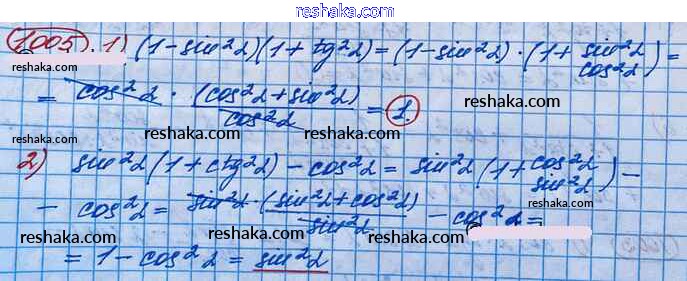 reshaka.com
1005. 1) (1-sin²α)(1+tg²α)=(1-sin²α)·(1+sin²α/cos²α)=
reshaka.com reshaka.com
= cos²α · (cos²α+sin²α)/cos²α = 1.
reshaka.com
reshaka.com reshaka.com reshaka.com
2) sin²α(1+ctg²α)-cos²α=sin²α(1+cos²α/sin²α)-
reshaka.com reshaka.com
-cos²α=sin²α·(sin²α+cos²α)/sin²α-cos²α=
reshaka.com reshaka.com reshaka.com
=1-cos²α=sin²α